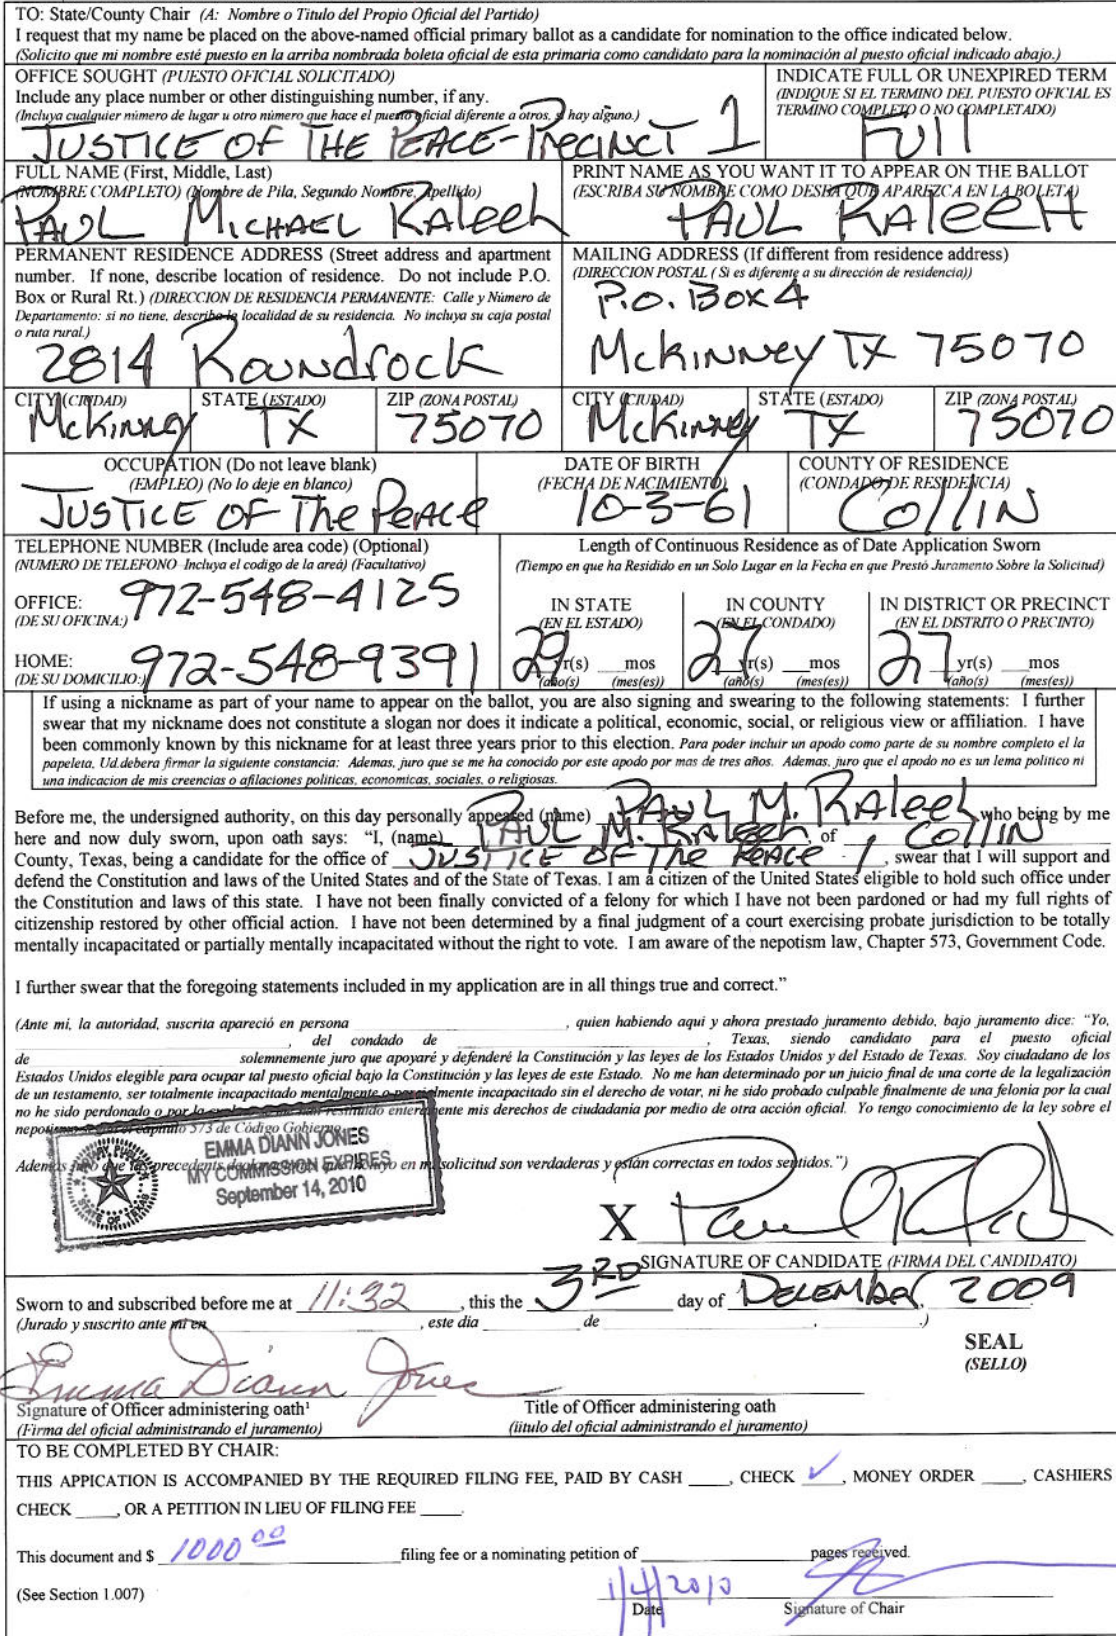 TO: State/County Chair (A: Nombre o Titulo del Propio Oficial del Partido)
I request that my name be placed on the above-named official primary ballot as a candidate for nomination to the office indicated below.
(Solicito que mi nombre esté puesto en la arriba nombrada boleta oficial de esta primaria como candidato para la nominación al puesto oficial indicado abajo.)
OFFICE SOUGHT (PUESTO OFICIAL SOLICITADO)
Include any place number or other distinguishing number, if any.
(Incluya cualquier número de lugar u otro número que hace el puesto oficial diferente a otros, si hay alguno.)
JUSTICE OF THE PEACE-PRECINCT 1
INDICATE FULL OR UNEXPIRED TERM
(INDIQUE SI EL TERMINO DEL PUESTO OFICIAL ES TERMINO COMPLETO O NO COMPLETADO)
Full
FULL NAME (First, Middle, Last)
(NOMBRE COMPLETO) (Nombre de Pila, Segundo Nombre, Apellido)
PAUL MICHAEL RALeeh
PRINT NAME AS YOU WANT IT TO APPEAR ON THE BALLOT
(ESCRIBA SU NOMBRE COMO DESEA QUE APAREZCA EN LA BOLETA)
PAUL RALeeH
PERMANENT RESIDENCE ADDRESS (Street address and apartment
number. If none, describe location of residence. Do not include P.O.
Box or Rural Rt.) (DIRECCION DE RESIDENCIA PERMANENTE: Calle y Número de
Departamento: si no tiene, describa la localidad de su residencia. No incluya su caja postal
o ruta rural.)
2814 Roundrock
MAILING ADDRESS (If different from residence address)
(DIRECCION POSTAL (Si es diferente a su dirección de residencia))
P.O. Box 4
McKinney TX 75070
CITY (CIUDAD) STATE (ESTADO) ZIP (ZONA POSTAL) CITY (CIUDAD) STATE (ESTADO) ZIP (ZONA POSTAL)
McKinney TX 75070 McKinney TX 75070
OCCUPATION (Do not leave blank)
(EMPLEO) (No lo deje en blanco)
JUSTICE OF The PeACe
DATE OF BIRTH
(FECHA DE NACIMIENTO)
10-3-61
COUNTY OF RESIDENCE
(CONDADO DE RESIDENCIA)
Collin
TELEPHONE NUMBER (Include area code) (Optional)
(NUMERO DE TELEFONO Incluya el codigo de la areá) (Facultativo)
OFFICE: 972-548-4125
(DE SU OFICINA:)
HOME: 972-548-9391
(DE SU DOMICILIO:)
Length of Continuous Residence as of Date Application Sworn
(Tiempo en que ha Residido en un Solo Lugar en la Fecha en que Prestó Juramento Sobre la Solicitud)
IN STATE IN COUNTY IN DISTRICT OR PRECINCT
(EN EL ESTADO) (EN EL CONDADO) (EN EL DISTRITO O PRECINTO)
29 yr(s) ___mos 27 yr(s) ___mos 27 yr(s) ___mos
(año(s) (mes(es)) (año(s) (mes(es)) (año(s) (mes(es))
If using a nickname as part of your name to appear on the ballot, you are also signing and swearing to the following statements: I further
swear that my nickname does not constitute a slogan nor does it indicate a political, economic, social, or religious view or affiliation. I have
been commonly known by this nickname for at least three years prior to this election. Para poder incluir un apodo como parte de su nombre completo el la
papeleta, Ud.debera firmar la siguiente constancia: Ademas, juro que se me ha conocido por este apodo por mas de tres años. Ademas, juro que el apodo no es un lema politico ni
una indicacion de mis creencias o afilaciones politicas, economicas, sociales, o religiosas.
Before me, the undersigned authority, on this day personally appeared (name) PAUL M. RAleeh who being by me
here and now duly sworn, upon oath says: "I, (name) PAUL M. Raleeh of Collin
County, Texas, being a candidate for the office of JUSTICE OF The PeACe 1, swear that I will support and
defend the Constitution and laws of the United States and of the State of Texas. I am a citizen of the United States eligible to hold such office under
the Constitution and laws of this state. I have not been finally convicted of a felony for which I have not been pardoned or had my full rights of
citizenship restored by other official action. I have not been determined by a final judgment of a court exercising probate jurisdiction to be totally
mentally incapacitated or partially mentally incapacitated without the right to vote. I am aware of the nepotism law, Chapter 573, Government Code.
I further swear that the foregoing statements included in my application are in all things true and correct."
(Ante mi, la autoridad, suscrita apareció en persona ____, quien habiendo aqui y ahora prestado juramento debido, bajo juramento dice: "Yo,
____, del condado de ____, Texas, siendo candidato para el puesto oficial
de ____ solemnemente juro que apoyaré y defenderé la Constitución y las leyes de los Estados Unidos y del Estado de Texas. Soy ciudadano de los
Estados Unidos elegible para ocupar tal puesto oficial bajo la Constitución y las leyes de este Estado. No me han determinado por un juicio final de una corte de la legalización
de un testamento, ser totalmente incapacitado mentalmente o parcialmente incapacitado sin el derecho de votar, ni he sido probado culpable finalmente de una felonia por la cual
no he sido perdonado o por la restituido enteramente mis derechos de ciudadania por medio de otra acción oficial. Yo tengo conocimiento de la ley sobre el
nepotismo capitulo 573 de Código Gobierno.
Ademas juro que las precedents en mi solicitud son verdaderas y están correctas en todos sentidos.")
NOTARY PUBLIC
STATE OF TEXAS
EMMA DIANN JONES
MY COMMISSION EXPIRES
September 14, 2010
X
SIGNATURE OF CANDIDATE (FIRMA DEL CANDIDATO)
Sworn to and subscribed before me at 11:32, this the 3RD day of DECEMBER, 2009
(Jurado y suscrito ante mi en ____, este dia ____ de ____, ____.)
SEAL
(SELLO)
Emma Diann Jones
Signature of Officer administering oath¹ Title of Officer administering oath
(Firma del oficial administrando el juramento) (titulo del oficial administrando el juramento)
TO BE COMPLETED BY CHAIR:
THIS APPICATION IS ACCOMPANIED BY THE REQUIRED FILING FEE, PAID BY CASH ____, CHECK ✓, MONEY ORDER ____, CASHIERS
CHECK ____, OR A PETITION IN LIEU OF FILING FEE ____.
This document and $ 1000 00 filing fee or a nominating petition of ____ pages received.
(See Section 1.007)
1/4/2010
Date Signature of Chair